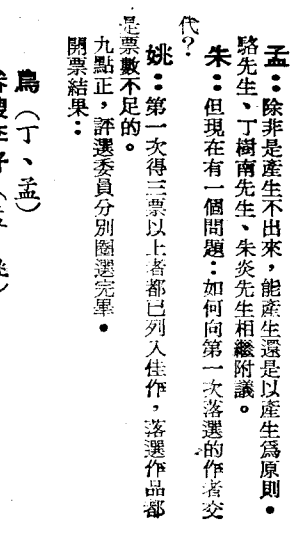 孟：除非是產生不出來，能產生還是以產生爲原則。
駱先生、丁樹南先生、朱炎先生相繼附議。
朱：但現在有一個問題：如何向第一次落選的作者交
代？
姚：第一次得三票以上者都已列入佳作，落選作品都
是票數不足的。
九點正，評選委員分別圈選完畢。
開票結果：
鳥（丁、孟）